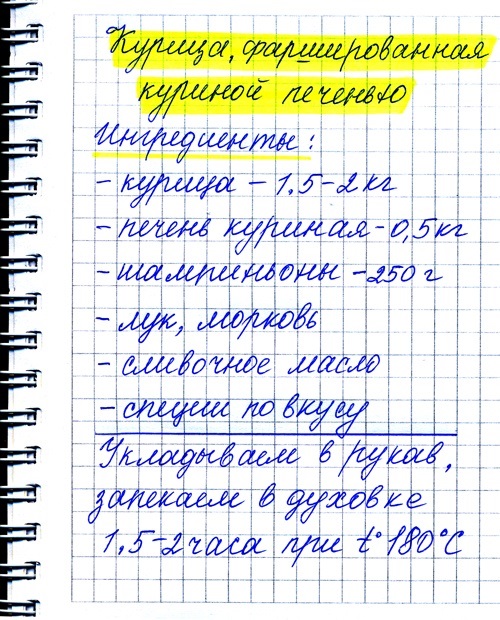 Курица, фаршированная
куриной печенью
Ингредиенты:
- курица - 1.5-2 кг
- печень куриная - 0,5 кг
- шампиньоны - 250 г
- лук, морковь
- сливочное масло
- специи по вкусу
Укладываем в рукав,
запекаем в духовке
1.5-2 часа при t° 180°С